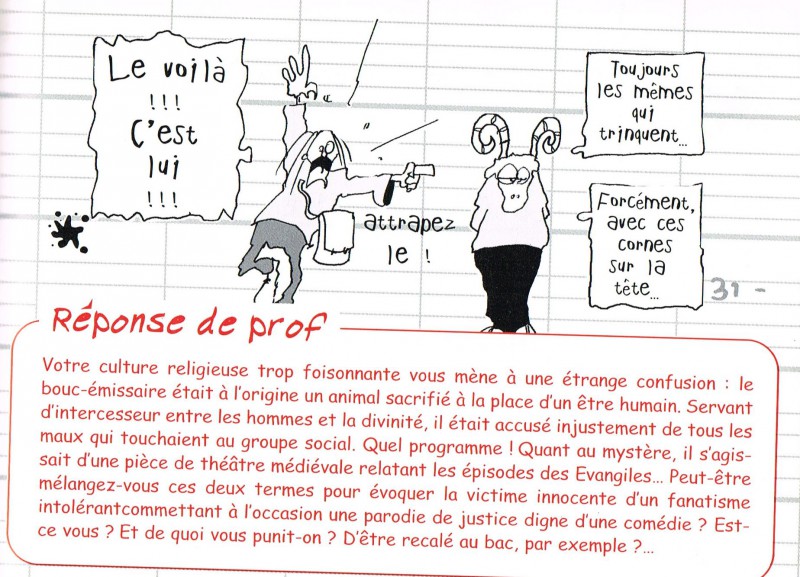 Le voilà
!!!
C'est
lui
!!!
attrapez
le !
Toujours
les mêmes
qui
trinquent...
Forcément,
avec ces
cornes
sur la
tête...
31 -
Réponse de prof
Votre culture religieuse trop foisonnante vous mène à une étrange confusion : le
bouc-émissaire était à l'origine un animal sacrifié à la place d'un être humain. Servant
d'intercesseur entre les hommes et la divinité, il était accusé injustement de tous les
maux qui touchaient au groupe social. Quel programme ! Quant au mystère, il s'agis-
sait d'une pièce de théâtre médiévale relatant les épisodes des Evangiles... Peut-être
mélangez-vous ces deux termes pour évoquer la victime innocente d'un fanatisme
intolérantcommettant à l'occasion une parodie de justice digne d'une comédie ? Est-
ce vous ? Et de quoi vous punit-on ? D'être recalé au bac, par exemple ?...